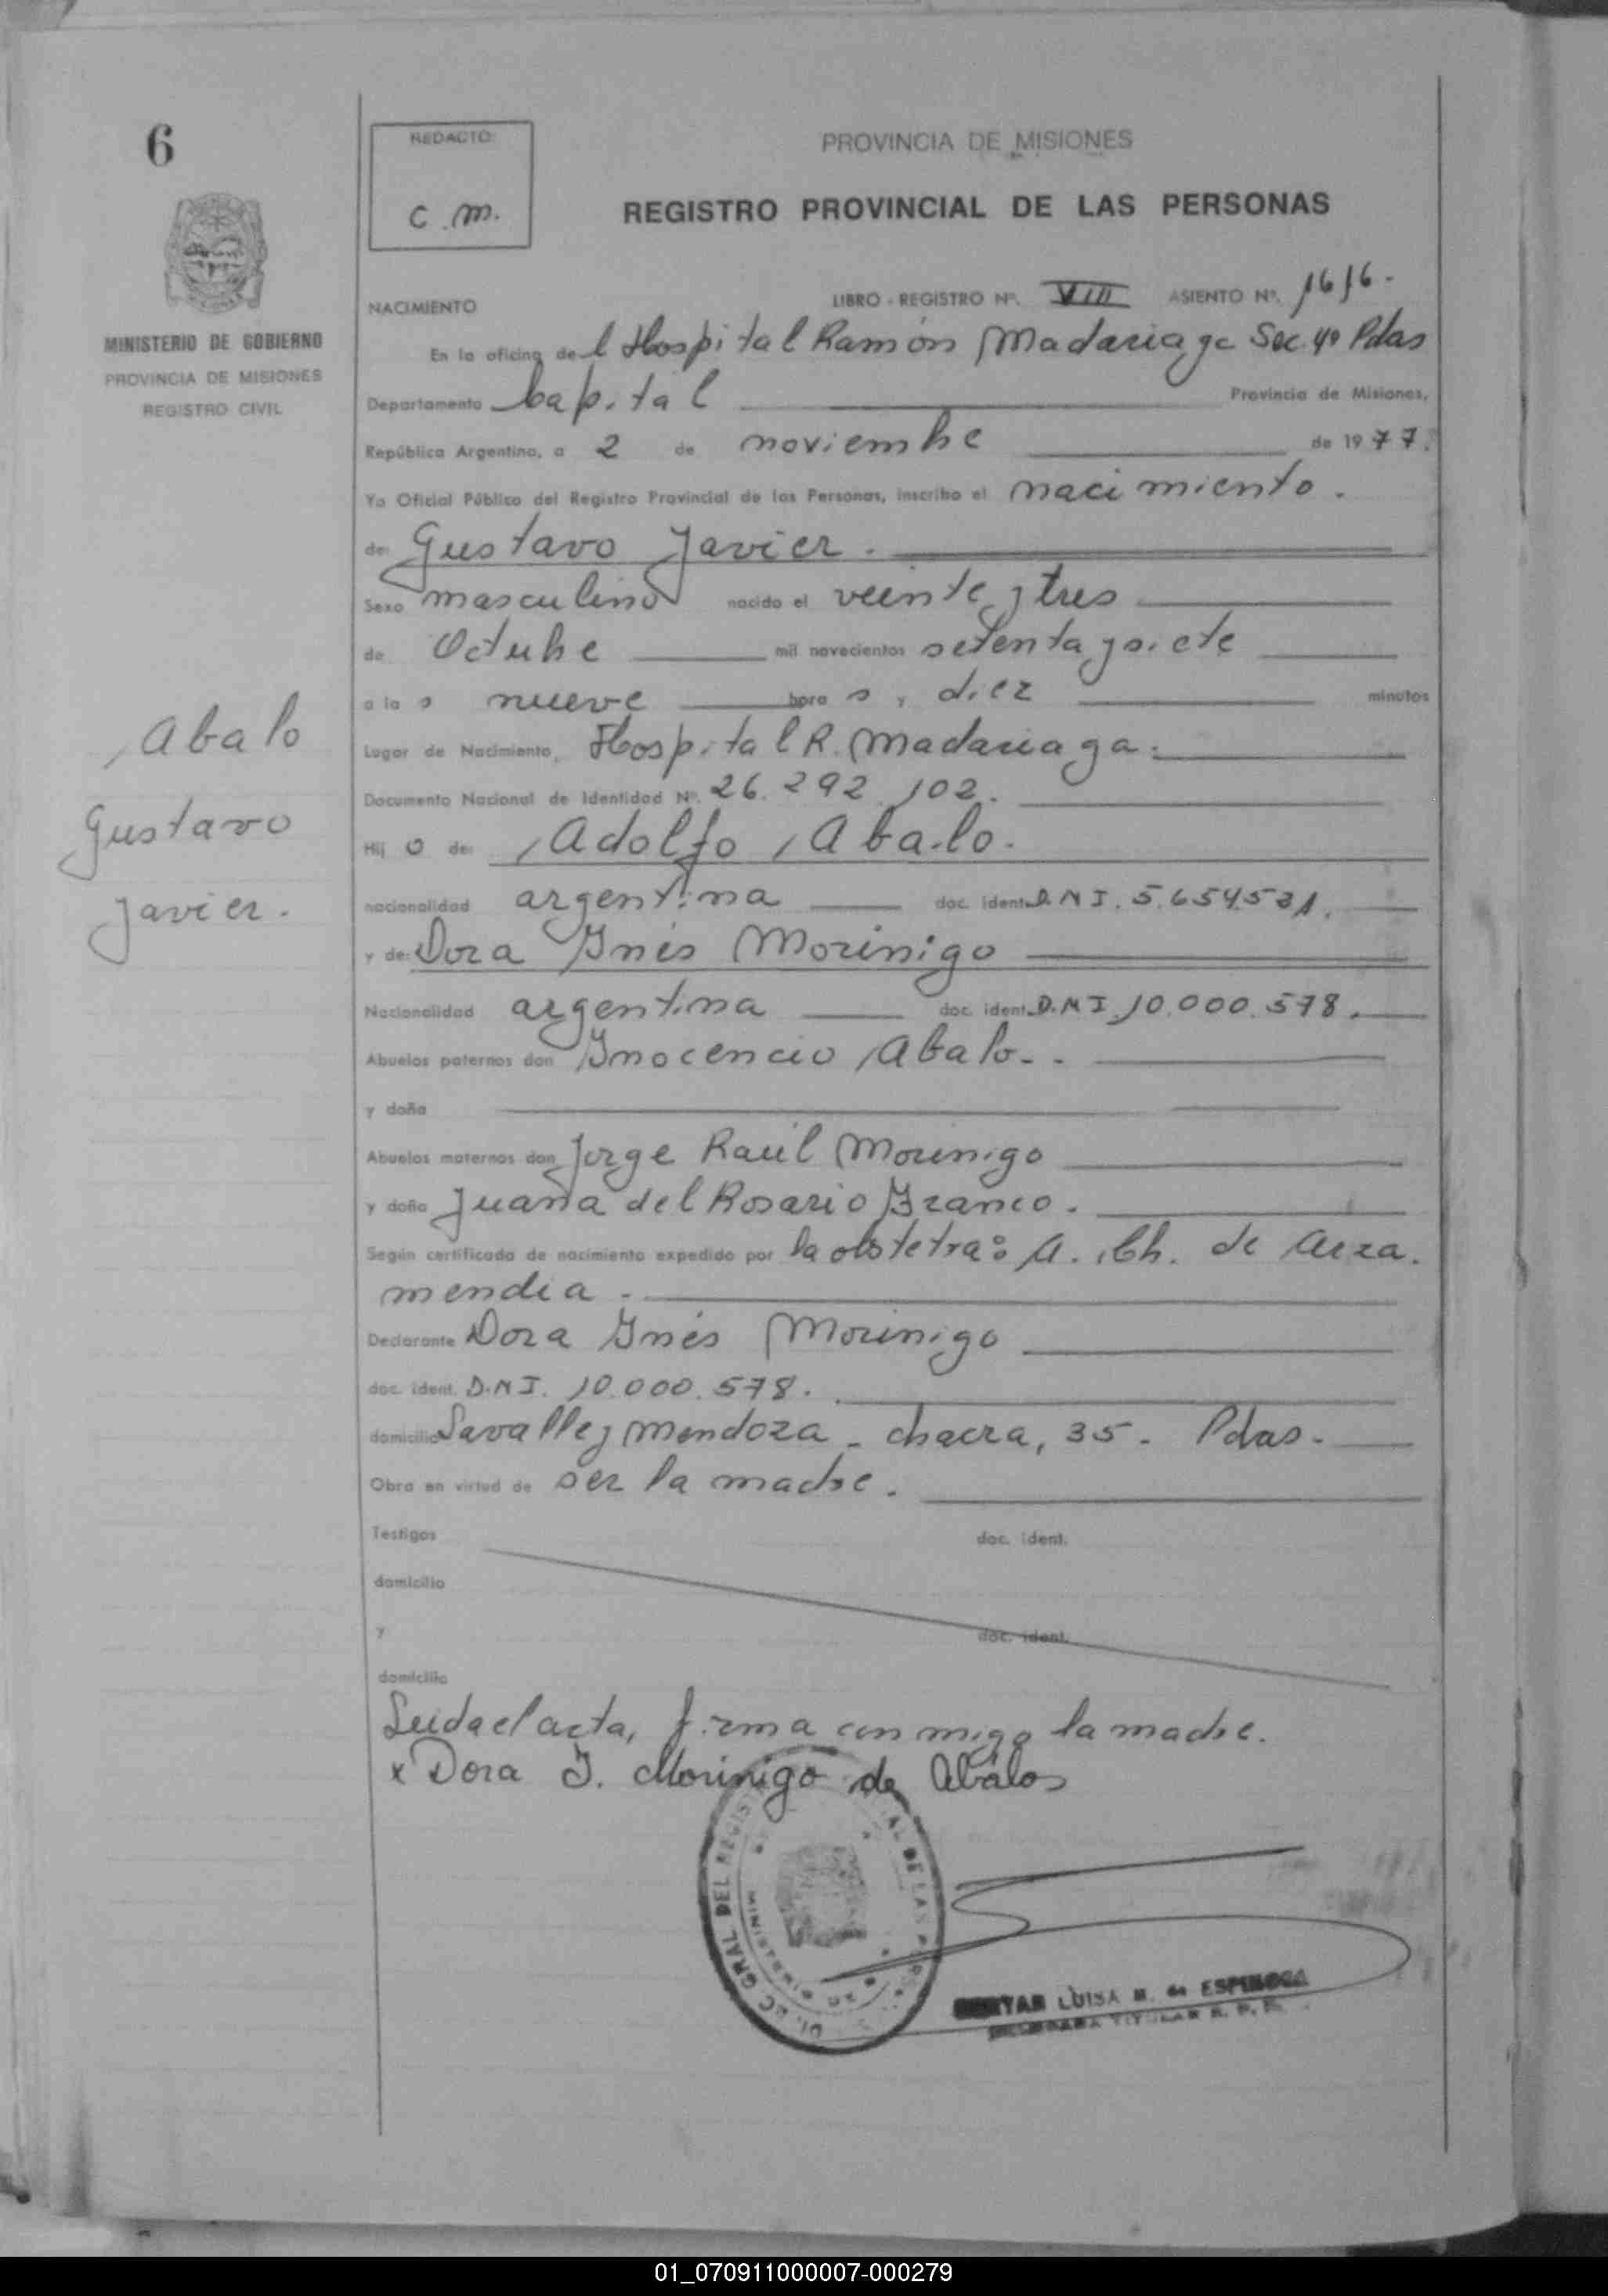 6
REDACTO:
C.M.
PROVINCIA DE MISIONES
REGISTRO PROVINCIAL DE LAS PERSONAS
MINISTERIO DE GOBIERNO
PROVINCIA DE MISIONES
REGISTRO CIVIL
NACIMIENTO LIBRO - REGISTRO Nº. VIII ASIENTO Nº. 1616.-
En la oficina del Hospital Ramón Madariaga Sec. 4º Pdas
Departamento Capital Provincia de Misiones,
República Argentina, a 2 de noviembre de 1977.
Yo Oficial Público del Registro Provincial de las Personas, inscribo el nacimiento.
de: Gustavo Javier.
Sexo masculino nacido el veinte y tres
de Octubre mil novecientos setenta y siete
a las nueve horas y diez minutos
Lugar de Nacimiento, Hospital R. Madariaga.
Documento Nacional de Identidad Nº. 26.292.102.
Hijo de: Adolfo Abalo.
nacionalidad argentina doc. ident. D.N.I. 5.654.531.
y de: Dora Inés Morinigo
Nacionalidad argentina doc. ident. D.N.I. 10.000.578.
Abuelos paternos don Inocencio Abalo.-
y doña
Abuelos maternos don Jorge Raúl Morinigo
y doña Juana del Rosario Franco.
Según certificado de nacimiento expedido por la obstetra: A. Ch. de Arza.
mendia.
Declarante Dora Inés Morinigo
doc. ident. D.N.I. 10.000.578.
domicilio Lavalle y Mendoza - chacra, 35 - Pdas.
Obra en virtud de ser la madre.
Testigos doc. ident.
domicilio
y doc. ident.
domicilio
Leida el acta, firma conmigo la madre.
x Dora I. Morinigo de Abalos
Abalo
Gustavo
Javier.
LUISA M. de ESPINOZA
TITULAR R. P. P.
01_070911000007-000279